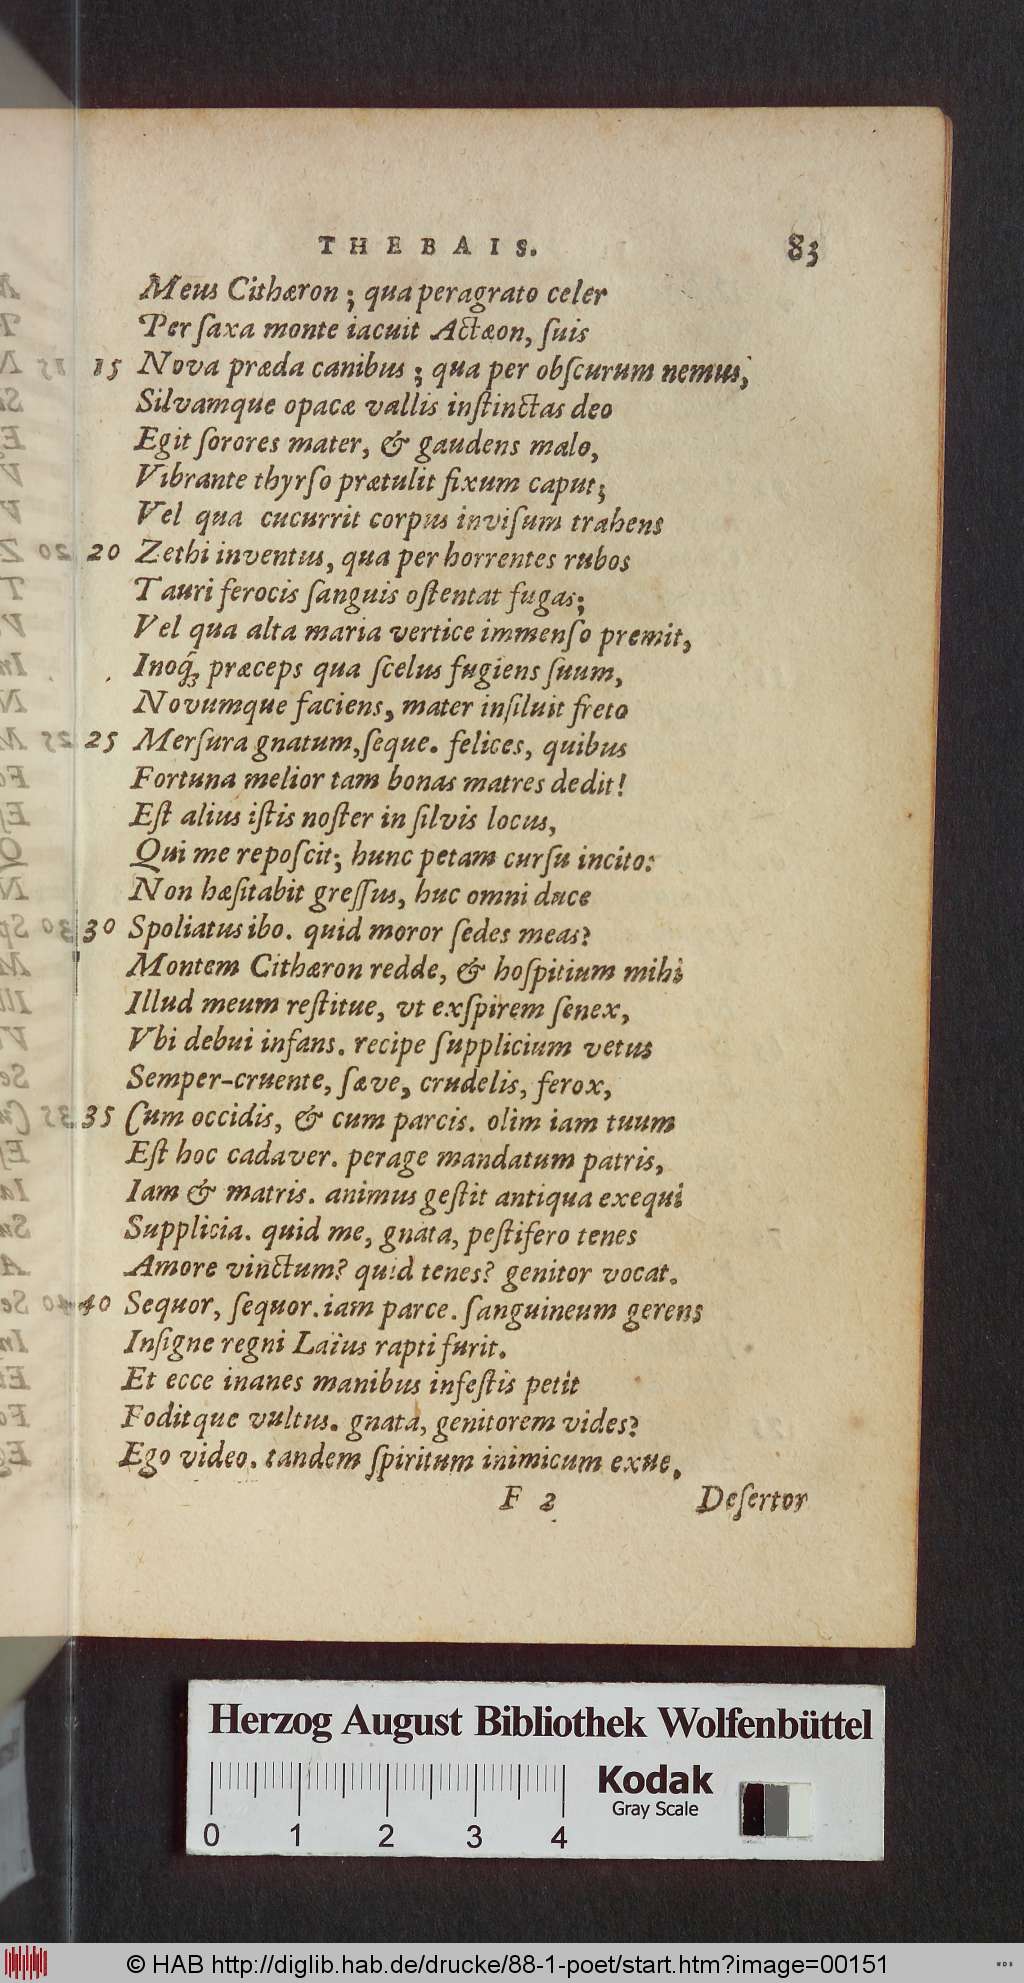 THEBAIS. 83
Meus Cithæron; qua peragrato celer
Per ſaxa monte iacuit Actæon, ſuis
15 Nova præda canibus; qua per obſcurum nemus,
Silvamque opacæ vallis inſtinctas deo
Egit ſorores mater, & gaudens malo,
Vibrante thyrſo prætulit fixum caput;
Vel qua cucurrit corpus inviſum trahens
20 Zethi inventus, qua per horrentes rubos
Tauri ferocis ſanguis oſtentat fugas;
Vel qua alta maria vertice immenſo premit,
Inoq́ꝫ præceps qua ſcelus fugiens ſuum,
Novumque faciens, mater inſiluit freto
25 Merſura gnatum, ſeque. felices, quibus
Fortuna melior tam bonas matres dedit!
Eſt alius iſtis noſter in ſilvis locus,
Qui me repoſcit; hunc petam curſu incito:
Non hæſitabit greſſus, huc omni duce
30 Spoliatus ibo. quid moror ſedes meas?
Montem Cithæron redde, & hoſpitium mihi
Illud meum reſtitue, vt exſpirem ſenex,
Vbi debui infans. recipe ſupplicium vetus
Semper-cruente, ſæve, crudelis, ferox,
35 Cum occidis, & cum parcis. olim iam tuum
Eſt hoc cadaver. perage mandatum patris,
Iam & matris. animus geſtit antiqua exequi
Supplicia. quid me, gnata, peſtifero tenes
Amore vinctum? quid tenes? genitor vocat.
40 Sequor, ſequor. iam parce. ſanguineum gerens
Inſigne regni Laïus rapti furit.
Et ecce inanes manibus infeſtis petit
Foditque vultus. gnata, genitorem vides?
Ego video. tandem ſpiritum inimicum exue,
F 2 Deſertor
Herzog August Bibliothek Wolfenbüttel
Kodak
Gray Scale
0 1 2 3 4
© HAB http://diglib.hab.de/drucke/88-1-poet/start.htm?image=00151